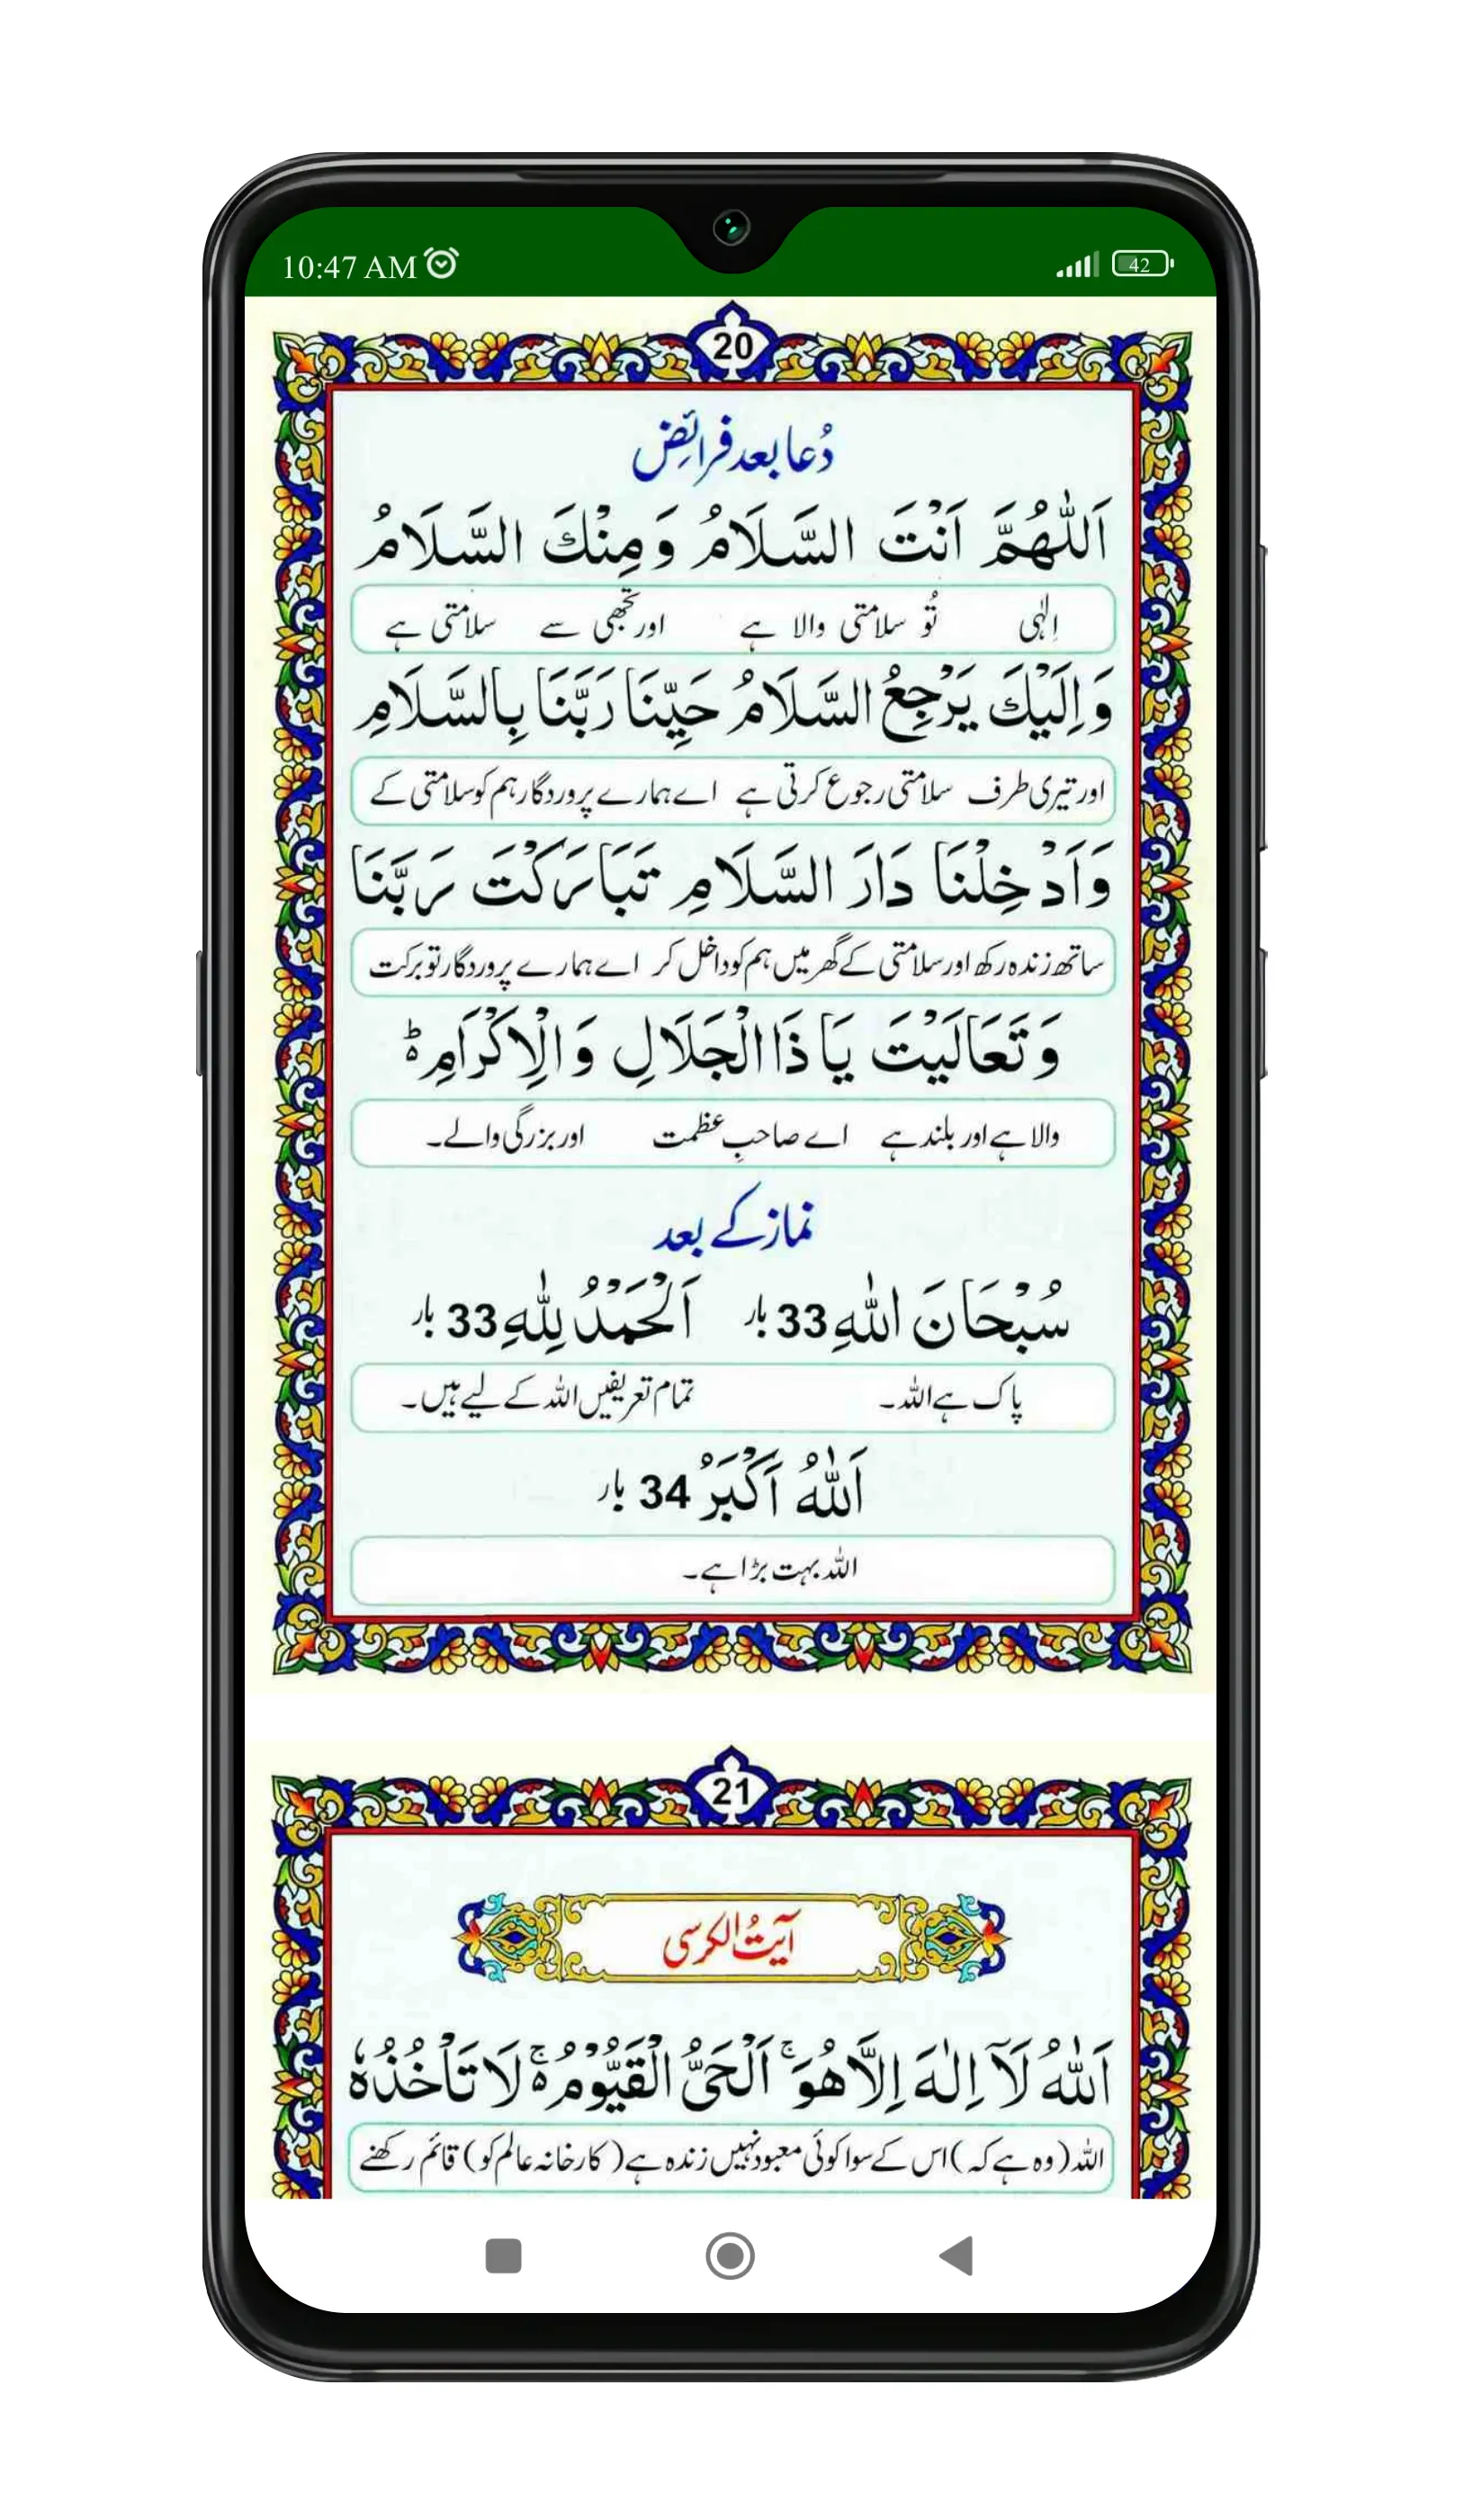 10:47 AM 42
20
دُعا بعد فرائِض
اَللّٰهُمَّ اَنْتَ السَّلَامُ وَمِنْكَ السَّلَامُ
اِلٰہی تُو سلامتی والا ہے اور تجھی سے سلامتی ہے
وَاِلَيْكَ يَرْجِعُ السَّلَامُ حَيِّنَا رَبَّنَا بِالسَّلَامِ
اور تیری طرف سلامتی رجوع کرتی ہے اے ہمارے پروردگار ہم کو سلامتی کے
وَاَدْخِلْنَا دَارَ السَّلَامِ تَبَارَكْتَ رَبَّنَا
ساتھ زندہ رکھ اور سلامتی کے گھر میں ہم کو داخل کر اے ہمارے پروردگار تو برکت
وَتَعَالَيْتَ يَا ذَا الْجَلَالِ وَالْاِكْرَامِ ؕ
والا ہے اور بلند ہے اے صاحبِ عظمت اور بزرگی والے۔
نماز کے بعد
سُبْحَانَ اللّٰهِ 33 بار اَلْحَمْدُ لِلّٰهِ 33 بار
پاک ہے اللہ۔ تمام تعریفیں اللہ کے لیے ہیں۔
اَللّٰهُ اَكْبَرُ 34 بار
اللہ بہت بڑا ہے۔
21
آیتُ الکرسی
اَللّٰهُ لَاۤ اِلٰهَ اِلَّا هُوَ ۚ اَلْحَيُّ الْقَيُّوْمُ ۚ لَا تَاْخُذُهٗ
اللہ (وہ ہے کہ) اس کے سوا کوئی معبود نہیں زندہ ہے (کارخانہ عالم کو) قائم رکھنے